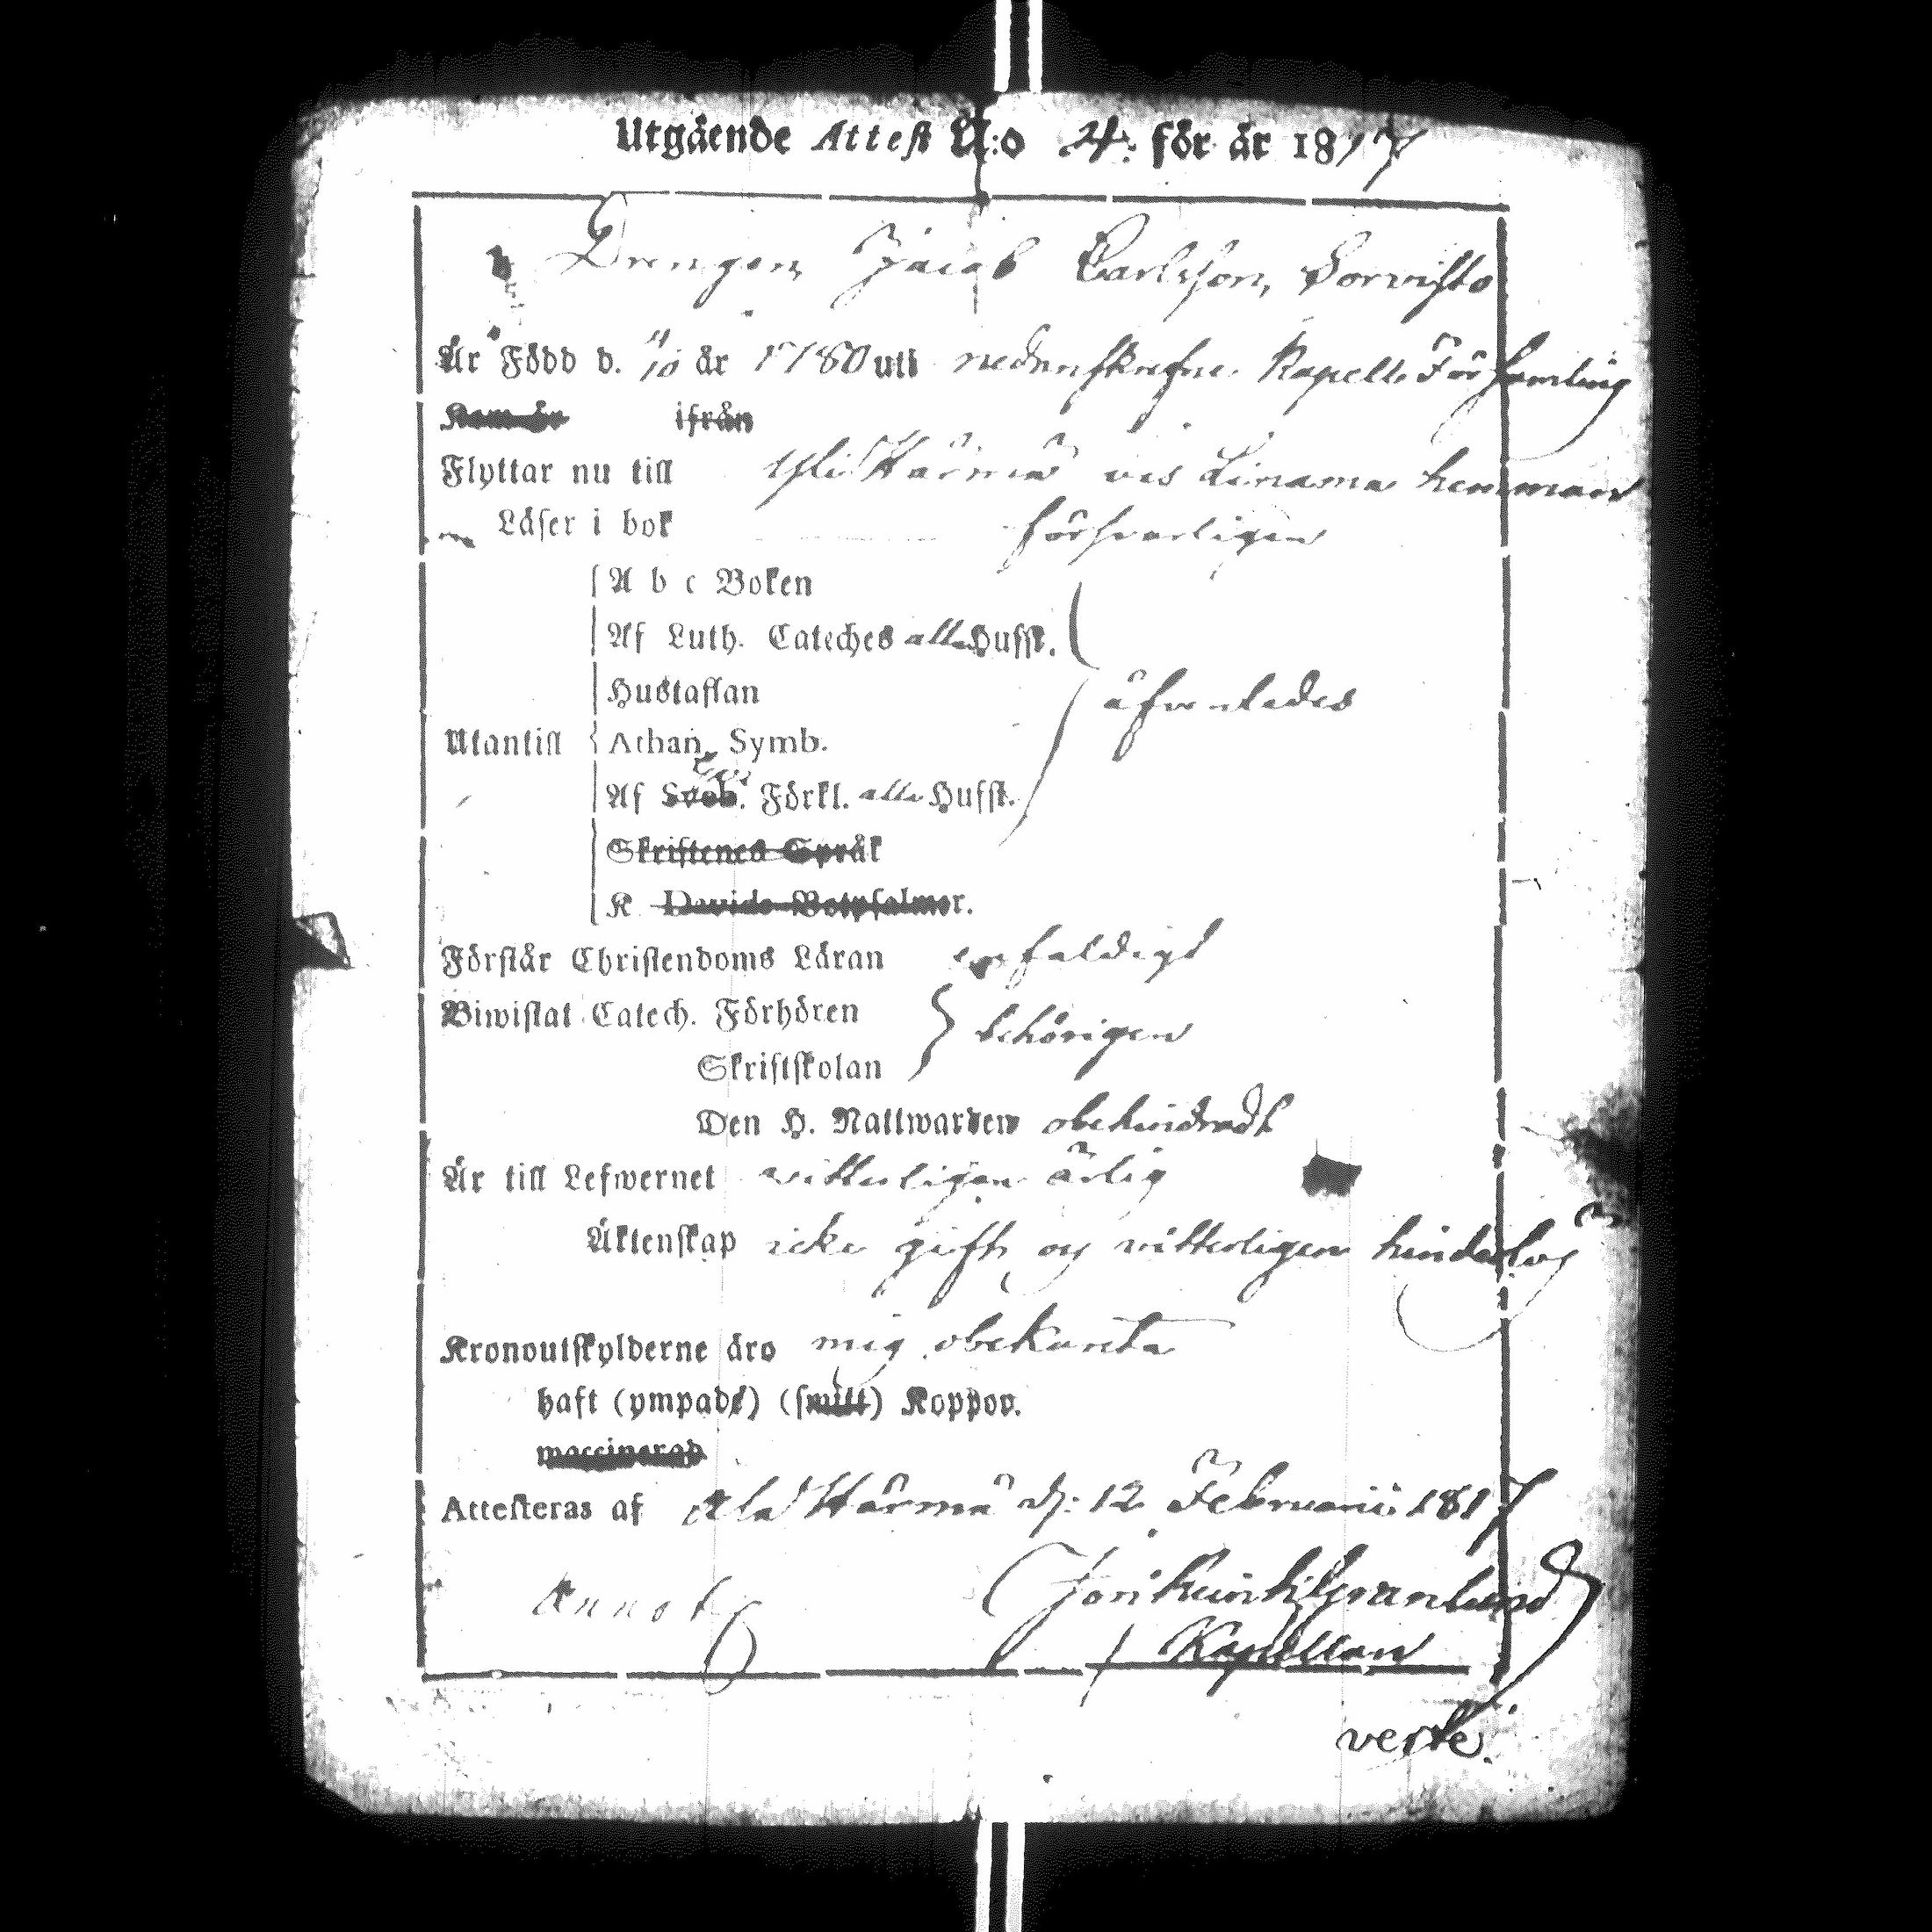 Utgående Attest N:o 4: för år 1817
Drengen Jacob Carlsson, Sorvisto
Är Född d. 11/10 år 1780 uti nedanskrefne Kapells Församling
Kom år ifrån
Flyttar nu till Yli Härmä vis Linama hemman
Läser i bok försvarligen
A b c Boken
Af Luth. Cateches alla Hufst.
Hustaflan äfvenledes
Utantill Athan. Symb.
Af Sveb. Förkl. alla Hufst.
Skriftenes Språk
K Davids Botpsalmer.
Förstår Christendoms Läran enfaldigt
Biwistat Catech. Förhören behörigen
Skriftskolan
Den H. Nattwarden obehindradt
Är till Lefwernet vitterligen ärlig
Äktenskap icke gift, og vitterligen hinderlös
Kronoutskylderne äro mig obekanta
haft (ympade) (smitt) Koppor.
waccinerad
Attesteras af Ala Härmä d: 12 Februarii 1817
Annot
Kapellan
verte.